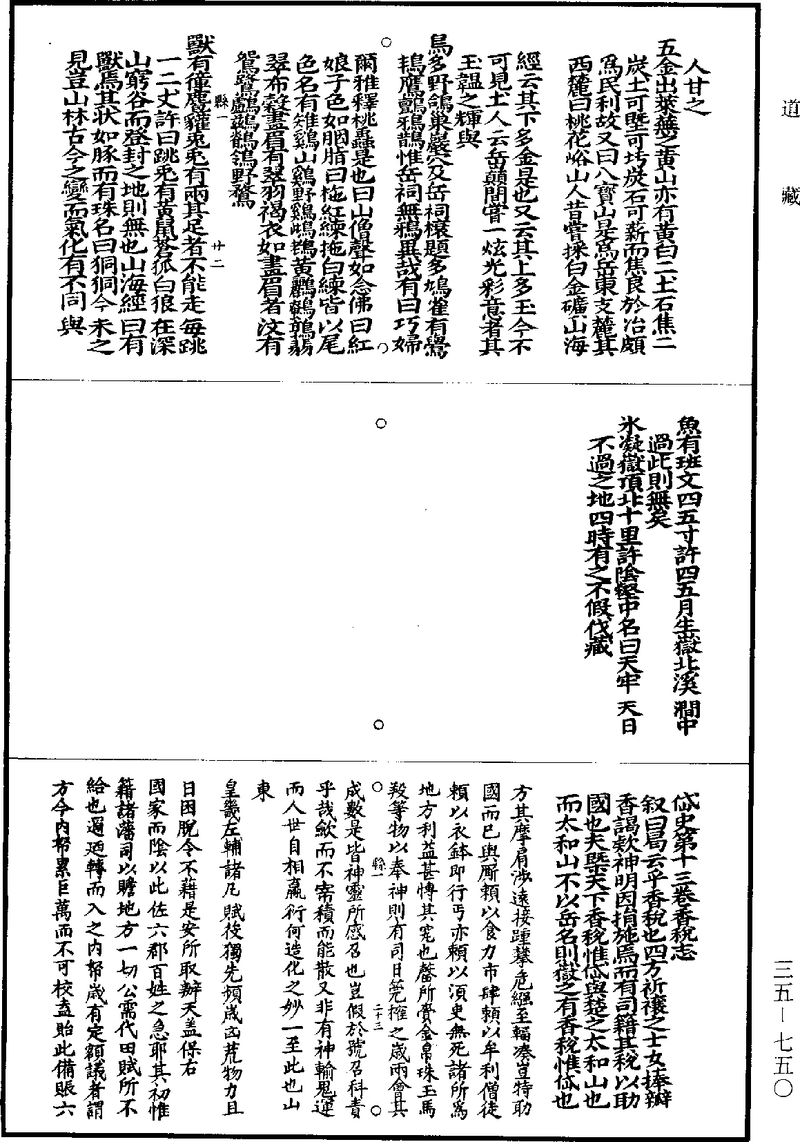 道藏
人甘之
五金出萊蕪之黃山亦有黃白二土石焦二
炭土可墍可圬炭石可薪而焦良於冶頗
爲民利故又曰八寶山是爲岳東支麓其
西麓曰桃花峪山人昔嘗採白金礦山海
經云其下多金是也又云其上多玉今不
可見土人云岳顛間嘗一炫光彩意者其
玉韞之輝與
鳥多野鴿巢巖穴及岳祠榱題多鳩雀有鷽
鴇鷹鸇鴉鵲惟岳祠無鴉異哉有曰巧婦
爾雅釋桃蟲是也曰山僧聲如念佛曰紅
娘子色如胭脂曰拖紅練拖白練皆以尾
色名有雉鷄山鷄野鷄鴆鴇黃鸝鵪鶉翡
翠布穀畫眉有翠羽褐衣如畫眉者汶有
鴛鴦鸕鶿鶺鴒野鶩
縣一
廿二
獸有獐麂玀兎兎有兩其足者不能走每跳
一二丈許曰跳兎有黃鼠蒼狐白狼在深
山窮谷而登封之地則無也山海經曰有
獸焉其状如豚而有珠名曰狪狪今未之
見豈山林古今之變而氣化有不同與
魚有班文四五寸許四五月生嶽北溪澗中
過此則無矣
氷凝嶽頂北十里許陰壑中名曰天牢天日
不過之地四時有之不假伐藏
岱史第十三卷香稅志
叙曰局云乎香稅也四方祈禳之士女捧瓣
香謁欵神明因捐施焉而有司籍其稅以助
國也夫槩天下香稅惟岱與楚之太和山也
而太和山不以岳名則嶽之有香稅惟岱也
方其摩肩涉遠接踵攀危繈至輻湊豈特助
國而已與厮賴以食力市肆賴以牟利僧徒
賴以衣鉢即行丐亦賴以須臾無死諸所爲
地方利益甚愽其寃也醵所賫金帛珠玉馬
羖等物以奉神則有司日筦搉之歲兩會其
縣一
二十三
成數是皆神靈所感召也豈假於號召科責
乎哉歛而不寄積而能散又非有神輸鬼運
而人世自相羸衍何造化之妙一至此也山
東
皇畿左輔諸凡賦役獨先頻歲凶荒物力且
日困脫令不藉是安所取辦天盖保右
國家而陰以此佐六郡百姓之急耶其初惟
籍諸藩司以贍地方一切公需代田賦所不
給也邇迺轉而入之内帑歲有定額議者謂
方今内帑累巨萬而不可校盍貽此備賬六
三五—七五〇